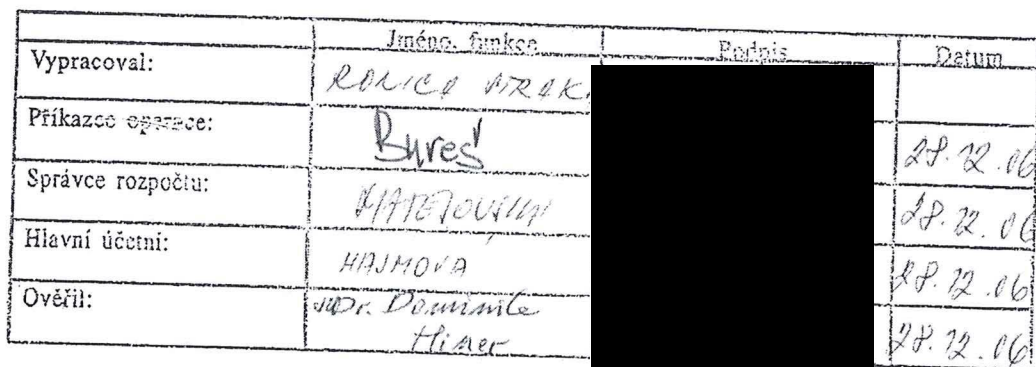 Jméno, funkce Podpis Datum
Vypracoval:
Příkazce operace: Bureš 28.12.06
Správce rozpočtu: 28.12.06
Hlavní účetní: HAJMOVA 28.12.06
Ověřil: JUDr. Dominik 28.12.06